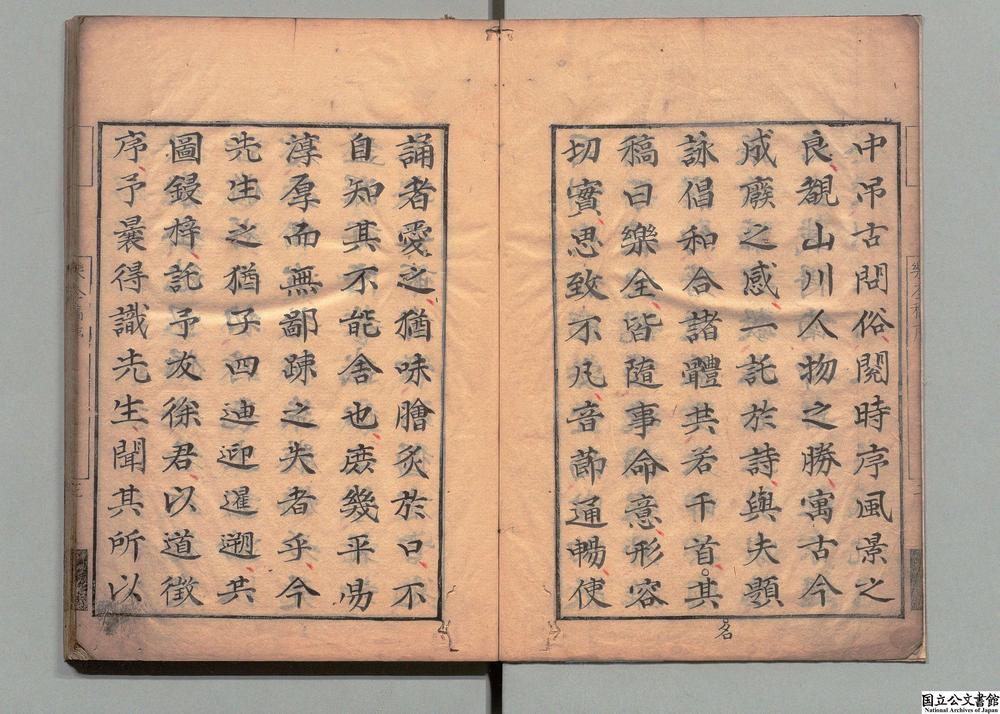 中吊古問俗閱時序風景之
良覩山川人物之勝寓古今
成廢之感一託於詩與夫題
詠倡和合諸體共若千首其
名
稿曰樂全皆隨事命意形容
切實思致不凡音節通暢使
誦者愛之猶味膾炙於口不
自知其不能舍也庶幾平易
淳厚而無鄙踈之失者乎今
先生之猶子四迪迎暹遡共
圖鋟梓託予友徐君以道徵
序予曩得識先生聞其所以
国立公文書館
National Archives of Japan